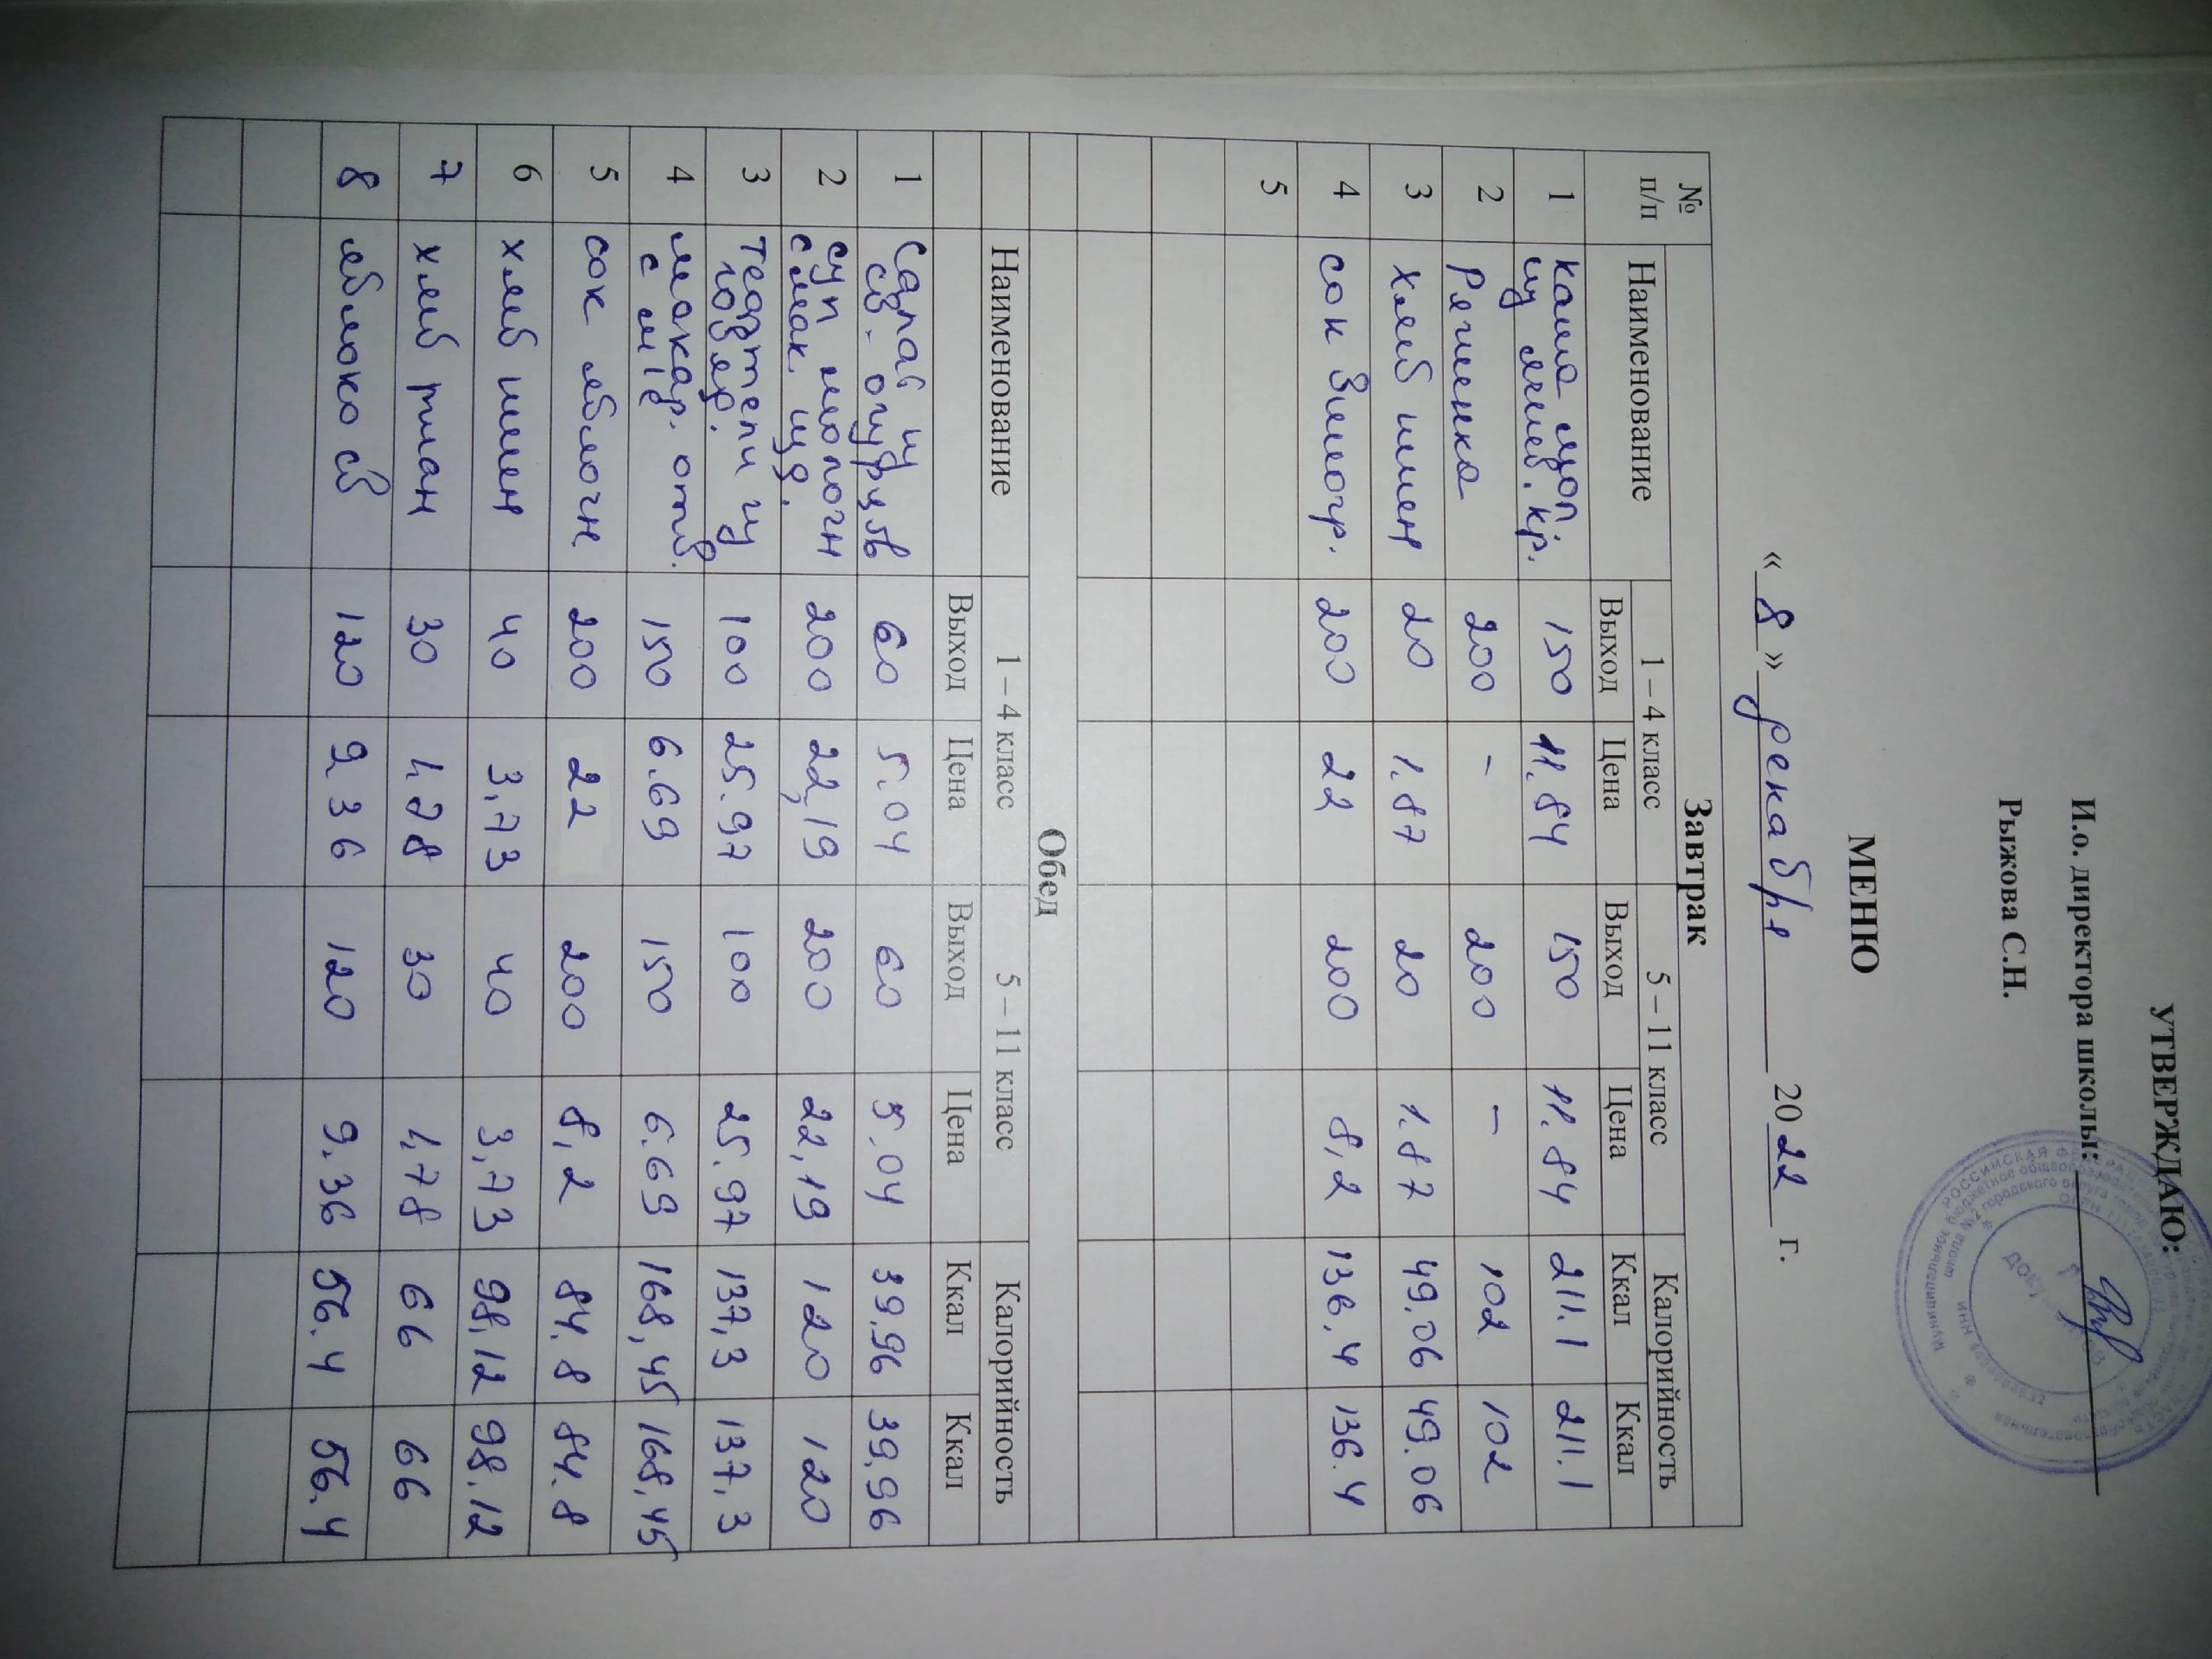 УТВЕРЖДАЮ:
И.о. директора школы:
Рыжова С.Н.
МЕНЮ
« 8 » декабря 2022 г.
Завтрак
№ п/п Наименование 1 – 4 класс 5 – 11 класс Калорийность
Выход Цена Выход Цена Ккал Ккал
1 каша мол.
из ячнев. кр. 150 11.84 150 11.84 211.1 211.1
2 Ряженка 200 - 200 - 102 102
3 хлеб пшен 20 1.87 20 1.87 49.06 49.06
4 сок Виногр. 200 22 200 8,2 136.4 136.4
5
Обед
Наименование 1 – 4 класс 5 – 11 класс Калорийность
Выход Цена Выход Цена Ккал Ккал
1 Салат из
св. огурцов 60 5.04 60 5.04 39,96 39,96
2 суп молочн
с мак. изд. 200 22,19 200 22,19 120 120
3 тефтели из
говяд. 100 25.97 100 25.97 137,3 137,3
4 макар. отв.
с м/с 150 6.69 150 6.69 168,45 168,45
5 сок яблочн 200 22 200 8,2 84.8 84.8
6 хлеб пшен 40 3,73 40 3,73 98,12 98.12
7 хлеб ржан 30 1,78 30 1,78 66 66
8 яблоко св 120 9.36 120 9.36 56.4 56.4